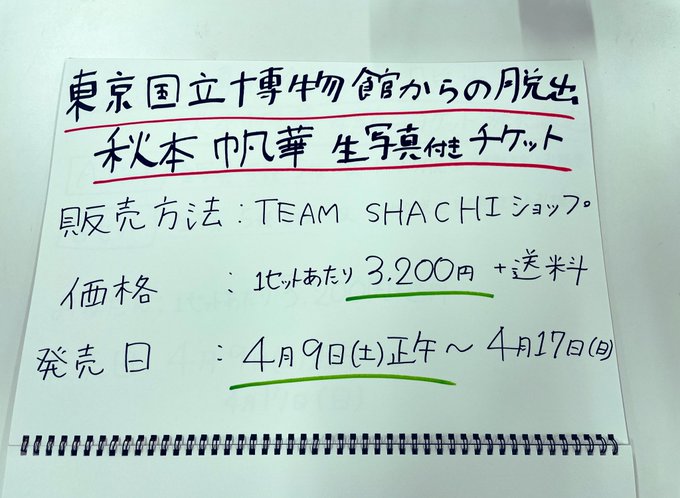 東京国立博物館からの脱出
秋本帆華 生写真付きチケット
販売方法：TEAM SHACHIショップ。
価格：1セットあたり 3,200円 +送料
発売日：4月9日(土)正午〜4月17日(日)